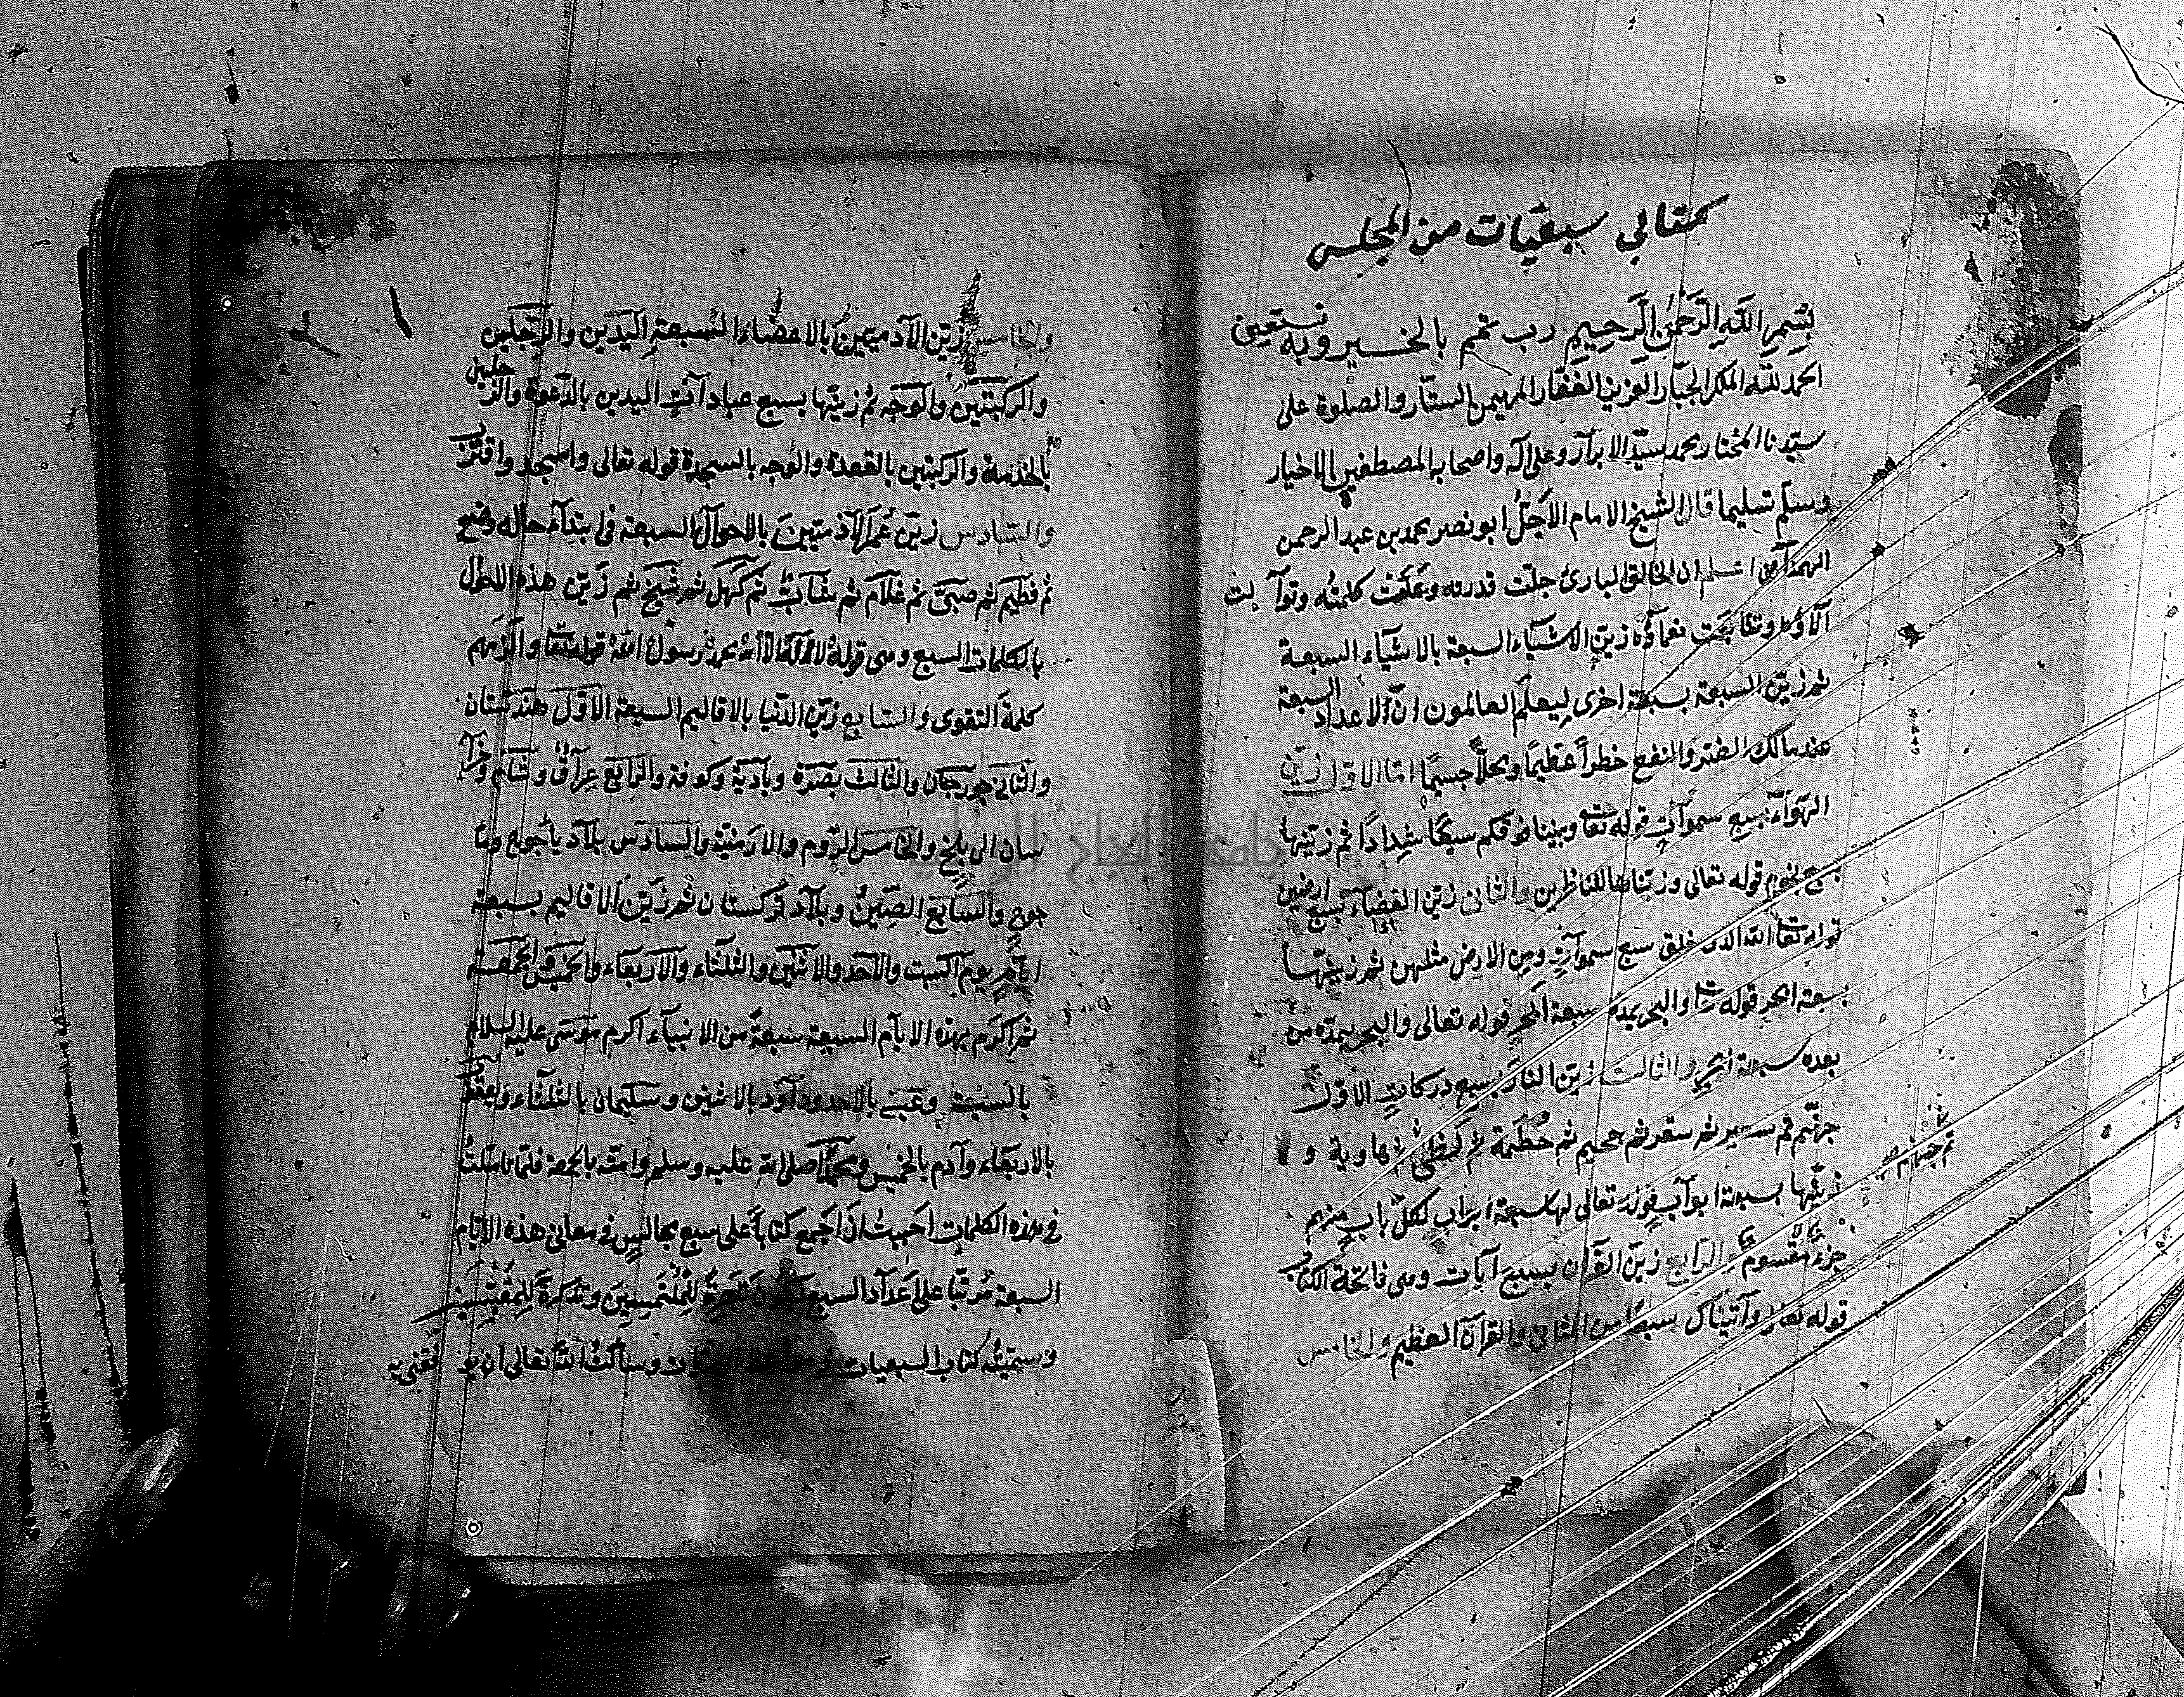 كتابي سبعيات من المجلس
بسم الله الرحمن الرحيم رب تمم بالخير وبه نستعين
الحمد لله الملك الجبار العزيز الغفار المهيمن الستار والصلوة على
سيدنا المختار محمد سيد الابرار وعلى اله واصحابه المصطفين الاخيار
وسلم تسليما قال الشيخ الامام الاجل ابو نصر محمد بن عبد الرحمن
الهمداني اعلم ان الخالق البارئ جلت قدرته وعلت كلمته وتوالت
آلاؤه وتتابعت نعماؤه زين الاشياء السبعة بالاشياء السبعة
ثم زين السبعة بسبعة اخرى ليعلم العالمون ان الاعداد السبعة
عند مالك الضر والنفع خطرا عظيما ومحلا جسيما اما الاول زين
الهواء بسبع سموات قوله تعا وبنينا فوقكم سبعا شدادا ثم زينها
بسبع نجوم قوله تعالى وزيناها للناظرين والثانى زين الفضاء بسبع ارضين
قوله تعا الله الذى خلق سبع سموات ومن الارض مثلهن ثم زينها
بسبعة ابحر قوله تعا والبحر يمده سبعة ابحر قوله تعالى والبحر يمده من
بعده سبعة ابحر والثالث زين النار بسبع دركات الاول
جهنم ثم سعير ثم سقر ثم جحيم ثم حطمة ثم لظى ثم هاوية و
زينها بسبعة ابواب قوله تعالى لها سبعة ابواب لكل باب منهم
جزء مقسوم والرابع زين القرآن بسبع آيات وهى فاتحة الكتاب
قوله تعالى وآتيناك سبعا من المثانى والقرآن العظيم والخامس
والخامس زين الآدميين بالاعضاء السبعة اليدين والرجلين
والركبتين والوجه ثم زينها بسبع عبادات اليدين بالدعوة والرجلين
بالخدمة والركبتين بالقعدة والوجه بالسجدة قوله تعالى واسجد واقترب
والسادس زين عمر الآدميين بالاحوال السبعة فى ابتداء حاله رضيع
ثم فطيم ثم صبى ثم غلام ثم شاب ثم كهل ثم شيخ ثم زين هذه الاحوال
بالكلمات السبع وهى قوله لا اله الا الله محمد رسول الله قوله تعا والزمهم
كلمة التقوى والسابع زين الدنيا بالاقاليم السبعة الاول هندستان
والثانى جورجان والثالث بصرة وبادية وكوفة والرابع عراق وشام وخرا
سان الى بلخ والخامس الروم والارمنية والسادس بلاد ياجوج وما
جوج والسابع الصين وبلاد تركستان ثم زين الاقاليم بسبعة
ايام يوم السبت والاحد والاثنين والثلثاء والاربعاء والخميس والجمعة
ثم اكرم بهذه الايام السبعة سبعة من الانبياء اكرم موسى عليه السلام
بالسبت وعيسى بالاحد وداود بالاثنين وسليمان بالثلثاء ويعقوب
بالاربعاء وآدم بالخميس ومحمدا صلى الله عليه وسلم وامته بالجمعة فلما تأملت
فى هذه الكلمات احببت ان اجمع كتابا على سبع مجالس فى معانى هذه الايام
السبعة مرتبا على اعداد السبع ليكون تبصرة للملتمسين وتذكرة للمقتبسين
وسميته كتاب السبعيات فى وسألت الله تعالى ان يوفقنى به